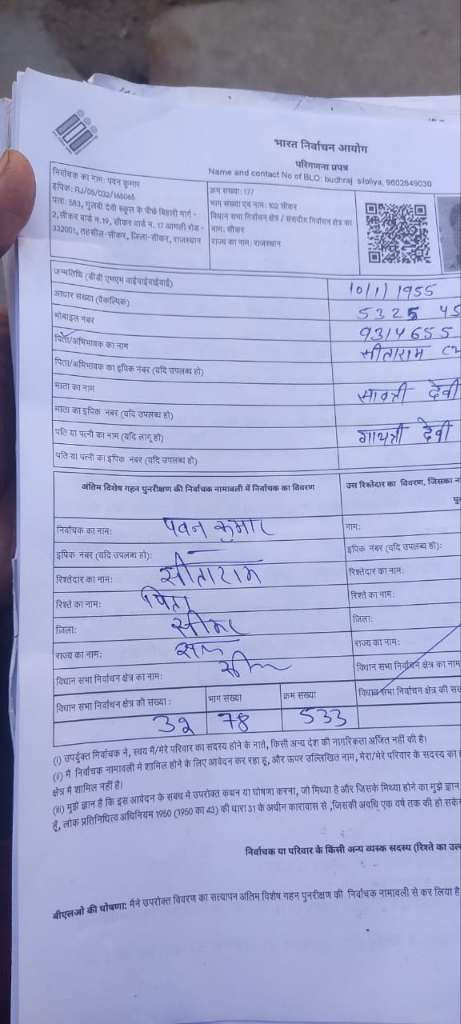 भारत निर्वाचन आयोग
परिगणना प्रपत्र
Name and contact No of BLO: budhraj siloliya, 9602849030
निर्वाचक का नाम: पवन कुमार
इपिक: RJ/05/032/146065
पता: 583, गुलबी देवी स्कूल के पीछे बिहारी मार्ग -
2, सीकर वार्ड न.19, सीकर वार्ड न. 17 आगली रोड -
332001, तहसील-सीकर, जिला-सीकर, राजस्थान
क्रम संख्या: 177
भाग संख्या एवं नाम: 102 सीकर
विधान सभा निर्वाचन क्षेत्र / संसदीय निर्वाचन क्षेत्र का
नाम: सीकर
राज्य का नाम: राजस्थान
जन्मतिथि (डीडी एमएम वाईवाईवाईवाई) 10/1/1955
आधार संख्या (वैकल्पिक) 5325 45
मोबाइल नंबर 9314655
पिता/अभिभावक का नाम सीताराम
पिता/अभिभावक का इपिक नंबर (यदि उपलब्ध हो)
माता का नाम सावत्री देवी
माता का इपिक नंबर (यदि उपलब्ध हो)
पति या पत्नी का नाम (यदि लागू हो) गायत्री देवी
पति या पत्नी का इपिक नंबर (यदि उपलब्ध हो)
अंतिम विशेष गहन पुनरीक्षण की निर्वाचक नामावली में निर्वाचक का विवरण
उस रिश्तेदार का विवरण, जिसका
निर्वाचक का नाम: पवन कुमार
इपिक नंबर (यदि उपलब्ध हो):
रिश्तेदार का नाम: सीताराम
रिश्ते का नाम: पिता
जिला: सीकर
राज्य का नाम: राज
विधान सभा निर्वाचन क्षेत्र का नाम: सीकर
विधान सभा निर्वाचन क्षेत्र की संख्या : भाग संख्या क्रम संख्या
32 78 533
नाम:
इपिक नंबर (यदि उपलब्ध हो):
रिश्तेदार का नाम:
रिश्ते का नाम:
जिला:
राज्य का नाम:
विधान सभा निर्वाचन क्षेत्र का नाम
विधान सभा निर्वाचन क्षेत्र की
(i) उपर्युक्त निर्वाचक ने, स्वयं मैं/मेरे परिवार का सदस्य होने के नाते, किसी अन्य देश की नागरिकता अर्जित नहीं की है।
(ii) मैं निर्वाचक नामावली में शामिल होने के लिए आवेदन कर रहा हूं, और ऊपर उल्लिखित नाम, मेरा/मेरे परिवार के सदस्य का
क्षेत्र में शामिल नहीं है।
(iii) मुझे ज्ञान है कि इस आवेदन के संबंध में उपरोक्त कथन या घोषणा करना, जो मिथ्या है और जिसके मिथ्या होने का मुझे ज्ञान
हूं, लोक प्रतिनिधित्व अधिनियम 1950 (1950 का 43) की धारा 31 के अधीन कारावास से ,जिसकी अवधि एक वर्ष तक की हो
निर्वाचक या परिवार के किसी अन्य वयस्क सदस्य (रिश्ते का
बीएलओ की घोषणा: मैंने उपरोक्त विवरण का सत्यापन अंतिम विशेष गहन पुनरीक्षण की निर्वाचक नामावली से कर लिया है